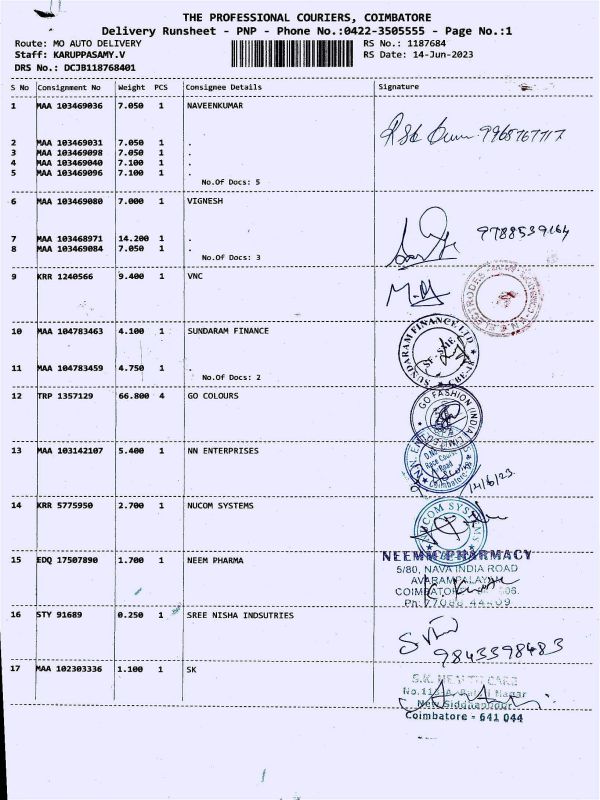 THE PROFESSIONAL COURIERS, COIMBATORE
Delivery Runsheet - PNP - Phone No.:0422-3505555 - Page No.:1
Route: MO AUTO DELIVERY RS No.: 1187684
Staff: KARUPPASAMY.V RS Date: 14-Jun-2023
DRS No.: DCJB118768401
S No Consignment No Weight PCS Consignee Details Signature
1 MAA 103469036 7.050 1 NAVEENKUMAR
2 MAA 103469031 7.050 1 .
3 MAA 103469098 7.050 1 .
4 MAA 103469040 7.100 1 .
5 MAA 103469096 7.100 1 .
No.Of Docs: 5
6 MAA 103469080 7.000 1 VIGNESH
9788539164
7 MAA 103468971 14.200 1 .
8 MAA 103469084 7.050 1 .
No.Of Docs: 3
9 KRR 1240566 9.400 1 VNC
ELECTRODES
10 MAA 104783463 4.100 1 SUNDARAM FINANCE
SUNDARAM FINANCE LTD
11 MAA 104783459 4.750 1 .
No.Of Docs: 2
12 TRP 1357129 66.800 4 GO COLOURS
GO FASHION (INDIA)
13 MAA 103142107 5.400 1 NN ENTERPRISES
Race Course
Road
Coimbatore
14/6/23
14 KRR 5775950 2.700 1 NUCOM SYSTEMS
NUCOM SYSTEMS
15 EDQ 17507890 1.700 1 NEEM PHARMA
NEEMM PHARMACY
5/80, NAVA INDIA ROAD
AVARAMPALAYAM
16 STY 91689 0.250 1 SREE NISHA INDSUTRIES
9843398483
17 MAA 102303336 1.100 1 SK
S.K. HEALTH CARE
New Siddhapudur
Coimbatore - 641 044